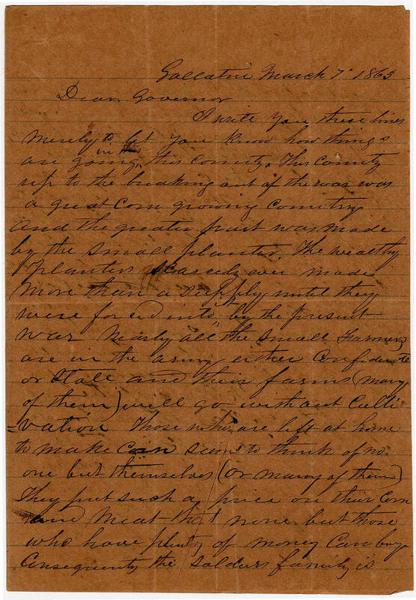 Gallatin March 7th 1863
Dear Governor
I write you these lines
merely to let you know how things
are going in this County. This County
up to the breaking out of the war was
a great Corn growing Country
and the greater part was made
by the small planter. The wealthy
planters scarcely ever made
more than a supply until they
were forced into it by the present
war Nearly all the small farmers
are in the army either Confederate
or State and their farms (many
of them) will go without Culti
=vation Those who are left at home
to make corn seem to think of no
one but themselves (or many of them)
They put such a price on their Corn
and Meat that none but those
who have plenty of money can buy
Consequently the Soldiers family is